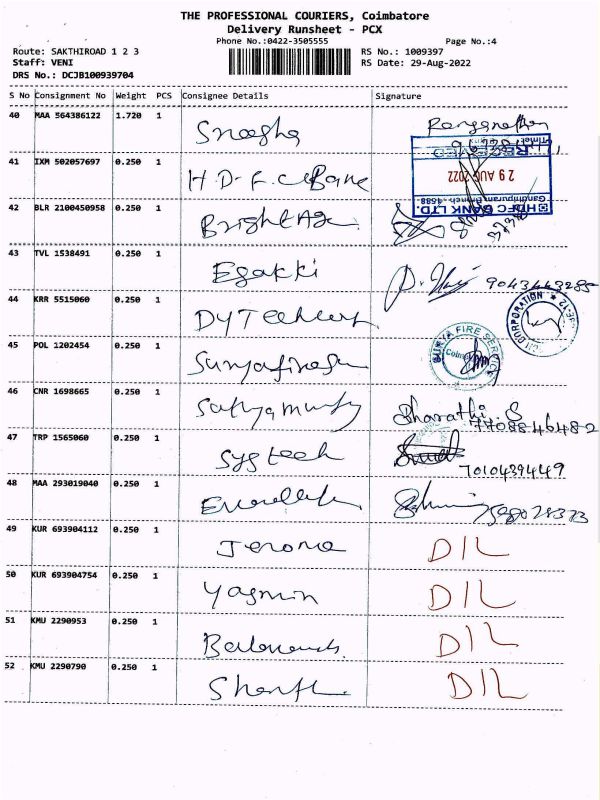 THE PROFESSIONAL COURIERS, Coimbatore
Delivery Runsheet - PCX
Phone No.:0422-3505555 Page No.:4
Route: SAKTHIROAD 1 2 3 RS No.: 1009397
Staff: VENI RS Date: 29-Aug-2022
DRS No.: DCJB100939704
S No Consignment No Weight PCS Consignee Details Signature
40 MAA 564386122 1.720 1 Sneegha Ranganathan
41 IXM 502057697 0.250 1 H.D.F.C Bank
RECEIVED
29 AUG 2022
Gandhipuram Branch -4588
HDFC BANK LTD.
42 BLR 2100450958 0.250 1 Bright Age
43 TVL 1538491 0.250 1 Egakki 9043443285
44 KRR 5515060 0.250 1 CORPORATION
45 POL 1202454 0.250 1 Suryafire SURYA FIRE SERVICE
46 CNR 1698665 0.250 1 Sathyamurthy Bharathi. S
7708846482
47 TRP 1565060 0.250 1 Systech
7010439449
48 MAA 293019040 0.250 1
49 KUR 693904112 0.250 1 Jerome D/L
50 KUR 693904754 0.250 1 Yasmin D/L
51 KMU 2290953 0.250 1 D/L
52 KMU 2290790 0.250 1 D/L